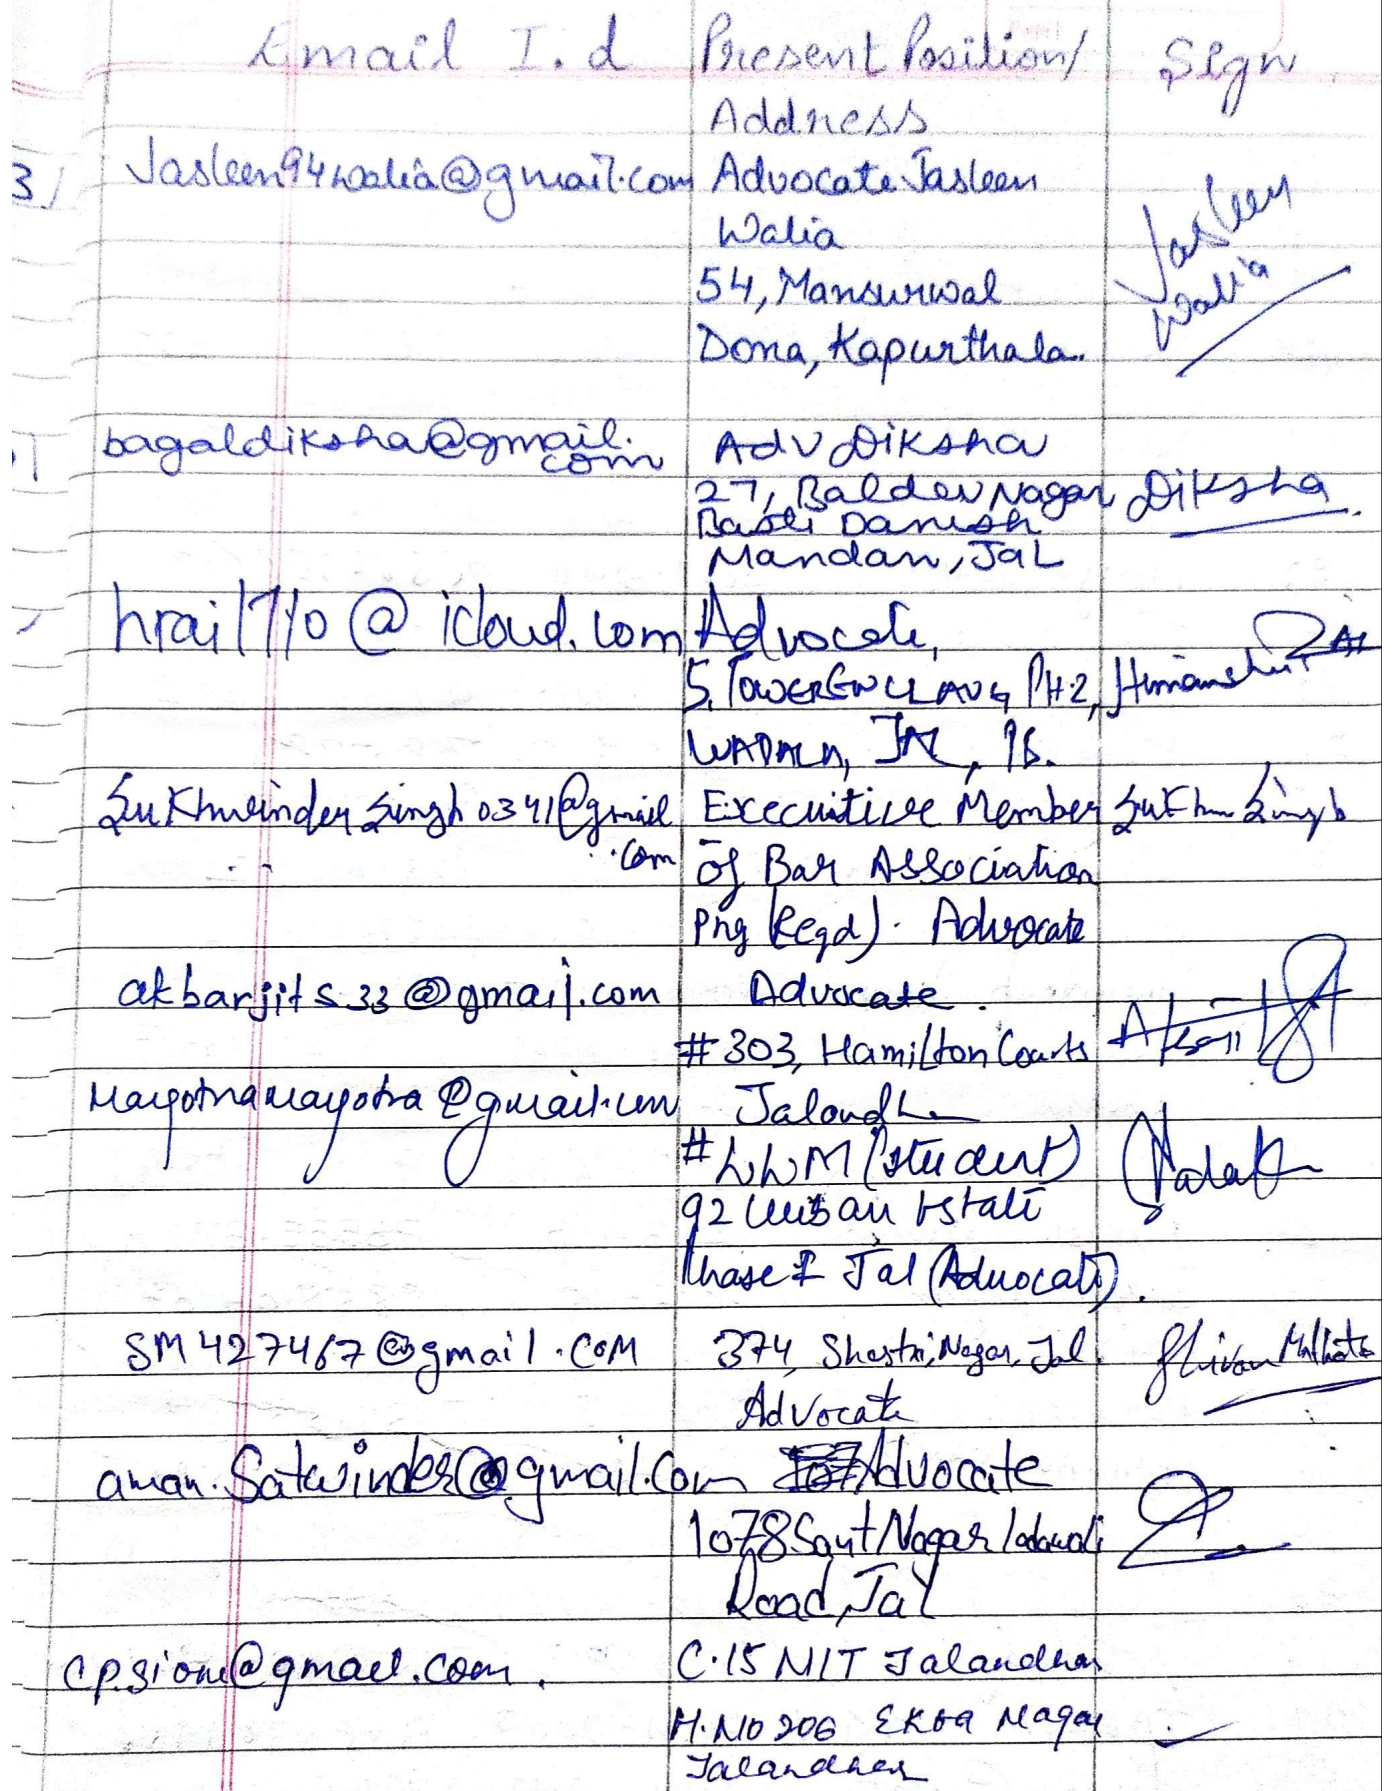 Email I.d Present Position/ Sign
Address
3/ Jasleen94walia@gmail.com Advocate Jasleen
Walia
54, Mansurwal
Dona, Kapurthala.
Jasleen
Walia
bagaldiksha@gmail.
com
Adv Diksha
27, Baldev Nagar
Basti Danish
Mandan, Jal
Diksha
@icloud.com Advocate,
5, TOWER ENCLAVE, PH-2, Himanshu RAI
WADALA, JAL, Pb.
Sukhwinder Singh 0341@gmail
.com
Executive Member
of Bar Association
(Regd). Advocate
Singh
akbarjits33@gmail.com Advocate.
#303, Hamilton Courts
Jalandh
@gmail.com
# LLM (student)
92 Urban Estate
Phase I Jal (Advocate).
Palak
SM427467@gmail.COM 374, Shastri Nagar, Jal.
Advocate
Shivam Malhotra
aman.Satwinder@gmail.com Advocate
1078 Sant Nagar Ladowali
Road, Jal
@gmail.com. C-15 NIT Jalandhar
H.NO 206 Ekta Nagar
Jalandhar